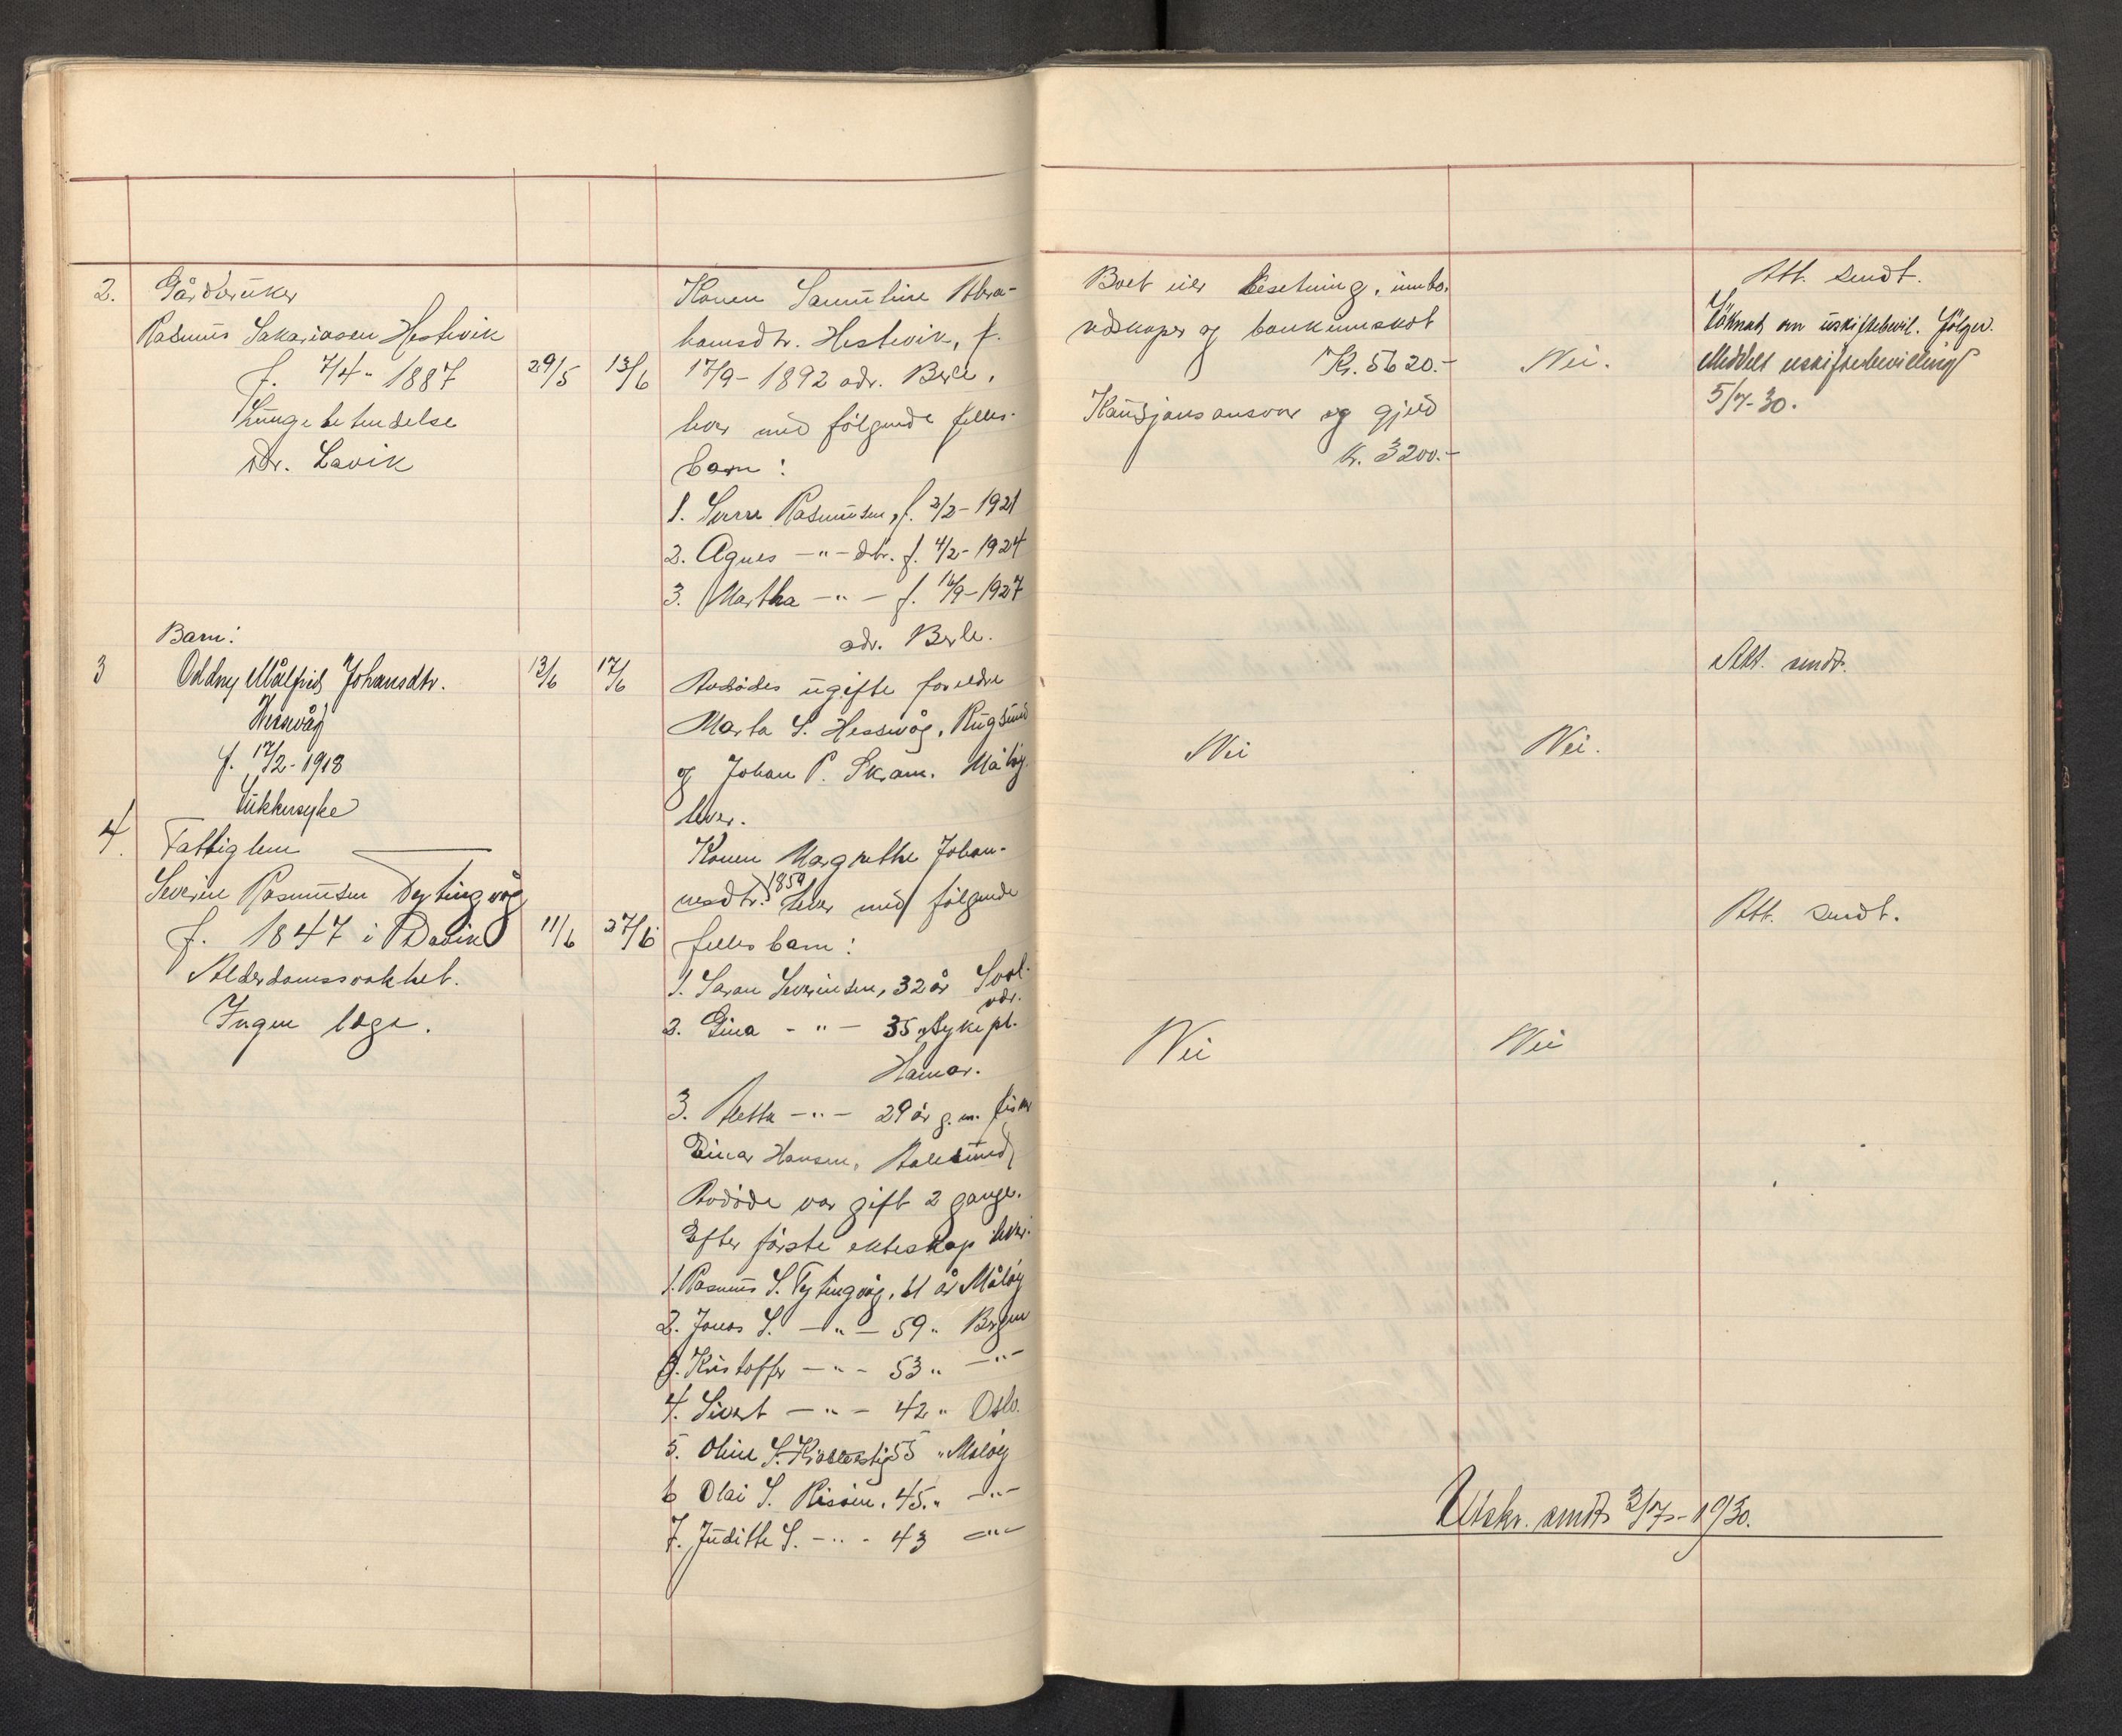 2. Gårdbruker
Rasmus Sakariasen Hestevik
f. 7/4- 1887 29/5 13/6
Lungebetendelse
Dr. Lavik
Konen Samuline Abra-
hamsdtr. Hestevik, f.
17/9- 1892 adr. Berle,
lever med følgende felles-
barn:
1. Sverre Rasmusen, f. 2/2- 1921
2. Agnes -"- dtr. f. 4/2- 1924
3. Martha -"- f. 14/9- 1927
adr. Berle.
Boet eier besetning, innbo,
redskaper og bankinnskot
Kr. 5620.-
Kausjonsansvar og gjeld
kr. 3200.-
Nei.
Att. sendt.
Søknad om uskiftebevil. følger.
Meddelt uskiftebevilling
5/7-30.
Barn:
3 Oddny Målfrid Johansdtr. 13/6 17/6
Hessvåg
f. 17/2- 1913
Sukkersyke
Avdødes ugifte foreldre
Marta S. Hessvåg, Rugsund
og Johan P. Skram. Måløy
lever.
Nei
Nei.
Att. sendt.
4. Fattiglem
Severin Rasmusen Tytingvåg
f. 1847 i Davik 11/6 27/6
Alderdomssvakhet.
Ingen læge.
Konen Margrethe Johan-
nesdtr. 1859 lever med følgende
fellesbarn:
1. Saran Severinsen, 32 år
2. Gina -"- 35 " Sykepl.
Hamar.
3. -"- 29 år g.m. fisker
Einar Hansen, Aalesund
Avdøde var gift 2 gange.
Efter første ekteskap lever:
1. Rasmus S. Tytingvåg, 61 år Måløy
2. Jonas S. -"- 59 " Bergen
3. Kristoffer -"- 53 " -"-
4. Sivert -"- 42 " Oslo.
5. Oline S. 55 " Måløy
6 Olai S. Risøen, 45 " -"-
7. Judithe S. -"- 43 -"-
Nei
Nei
Att. sendt.
Utskr. sendt 3/7- 1930.